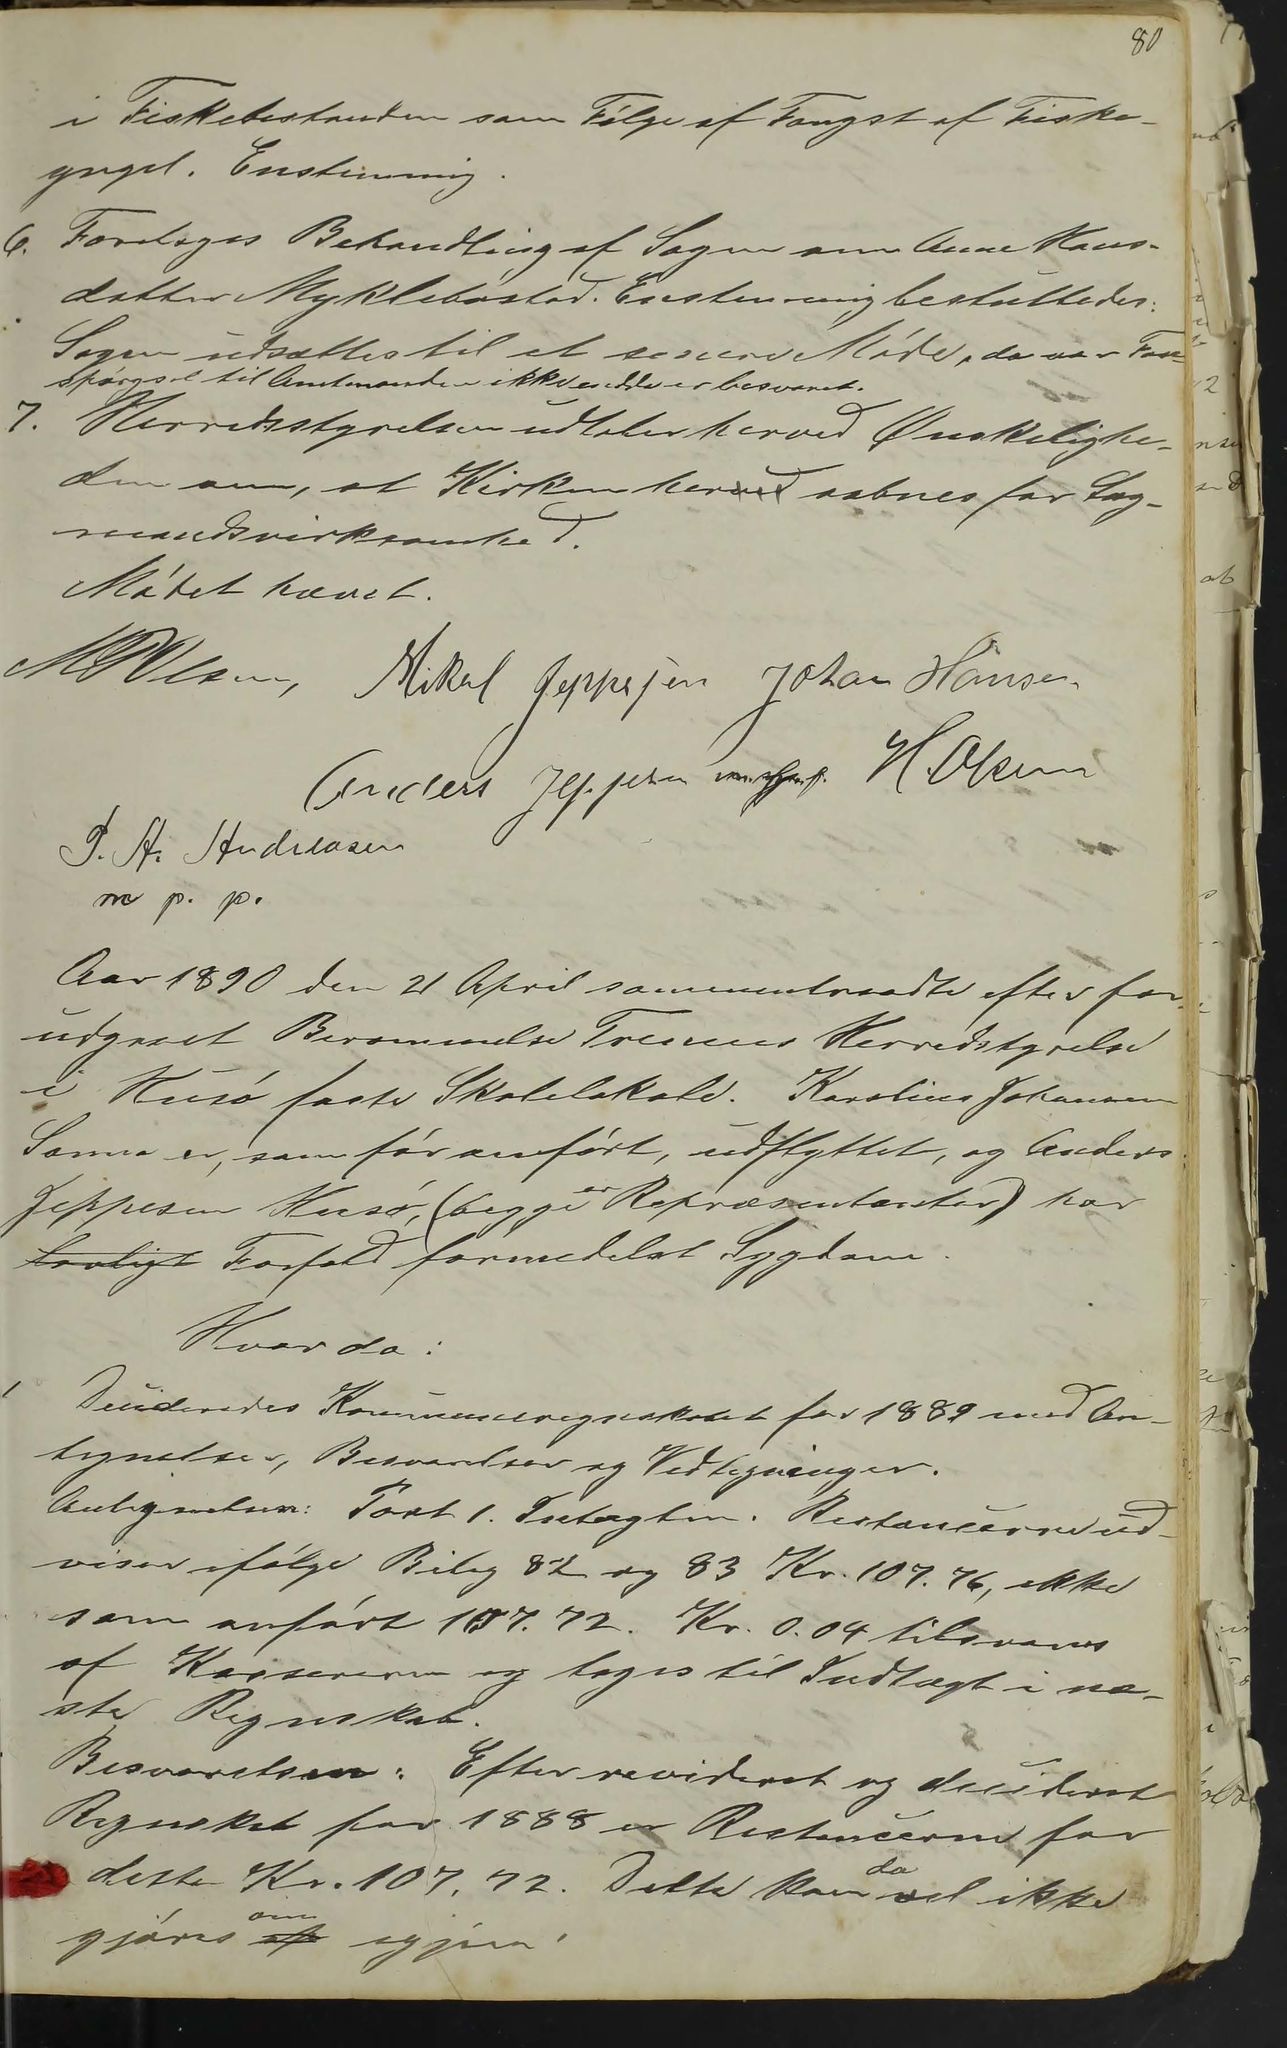 80
i Fiskebestanden som Følge af Fangst af Fiske-
yngel. Enstemmig.
6. Foretages Behandling af Sagen om Anne Hans-
datter Myklebostad. Enstemmig besluttedes:
Sagen udsættes til et senere Møde, da vor Fore-
spørgsel til Amtmanden ikke endda er besvaret.
7. Herredsstyrelsen udtaler herved Ønskelighe-
den om, at Kirken herved aabnes for Læg-
mandsvirksomhed.
Mødet hævet.
Olsen, Mikal Jeppesen Johan Hansen
Anders Jeppesen H. Olsen
P. A. Andreasen
m p. p.
Aar 1890 den 21 April sammentraadte efter for-
udgaaet Berammelse Trænens Herredsstyrelse
i Husø faste Skolelokale. Karolius Johansen
Sanna er, som før anført, udflyttet, og Anders
Jeppesen Husø, (begge er Repræsentanter) har
lovligt Forfald formedelst Sygdom.
Hvor da:
1 Desideredes Kommuneregnskabet for 1889 med An-
tegnelser, Besvarelser og Vedtegninger.
Antegnelsen: Post 1. Indtægten. Restancerne ud-
viser ifølge Bileg 82 og 83 Kr. 107.76, ikke
som anført 107.72. Kr. 0.04 tilsvares
af Kassereren og tages til Indtægt i næ-
ste Regnskab.
Besvarelsen: Efter revideret og desideret
Regnskab for 1888 er Restancerne for
dette Kr. 107,72. Dette kan da vel ikke
gjøres af om igjen!